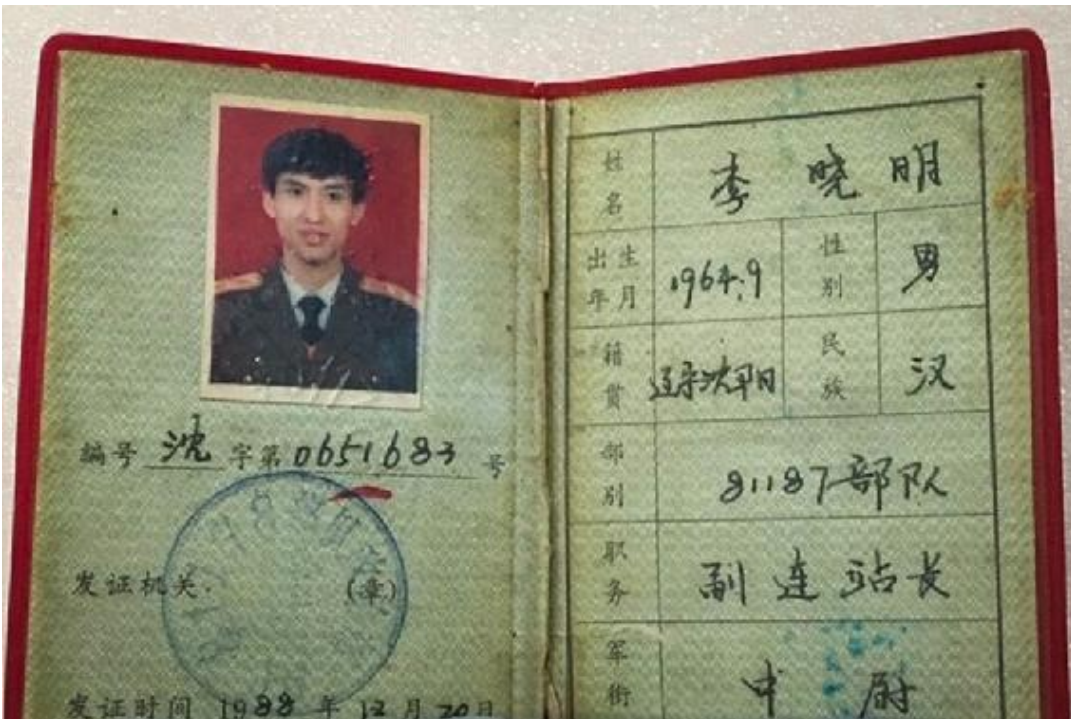 编号 沈 字第 0651683 号
发证机关. (章)
发证时间 1988 年 12 月 20 日
姓名 李晓明
出生年月 1964.9 性别 男
籍贯 辽宁沈阳 民族 汉
部别 81187部队
职务 副连站长
军衔 中尉